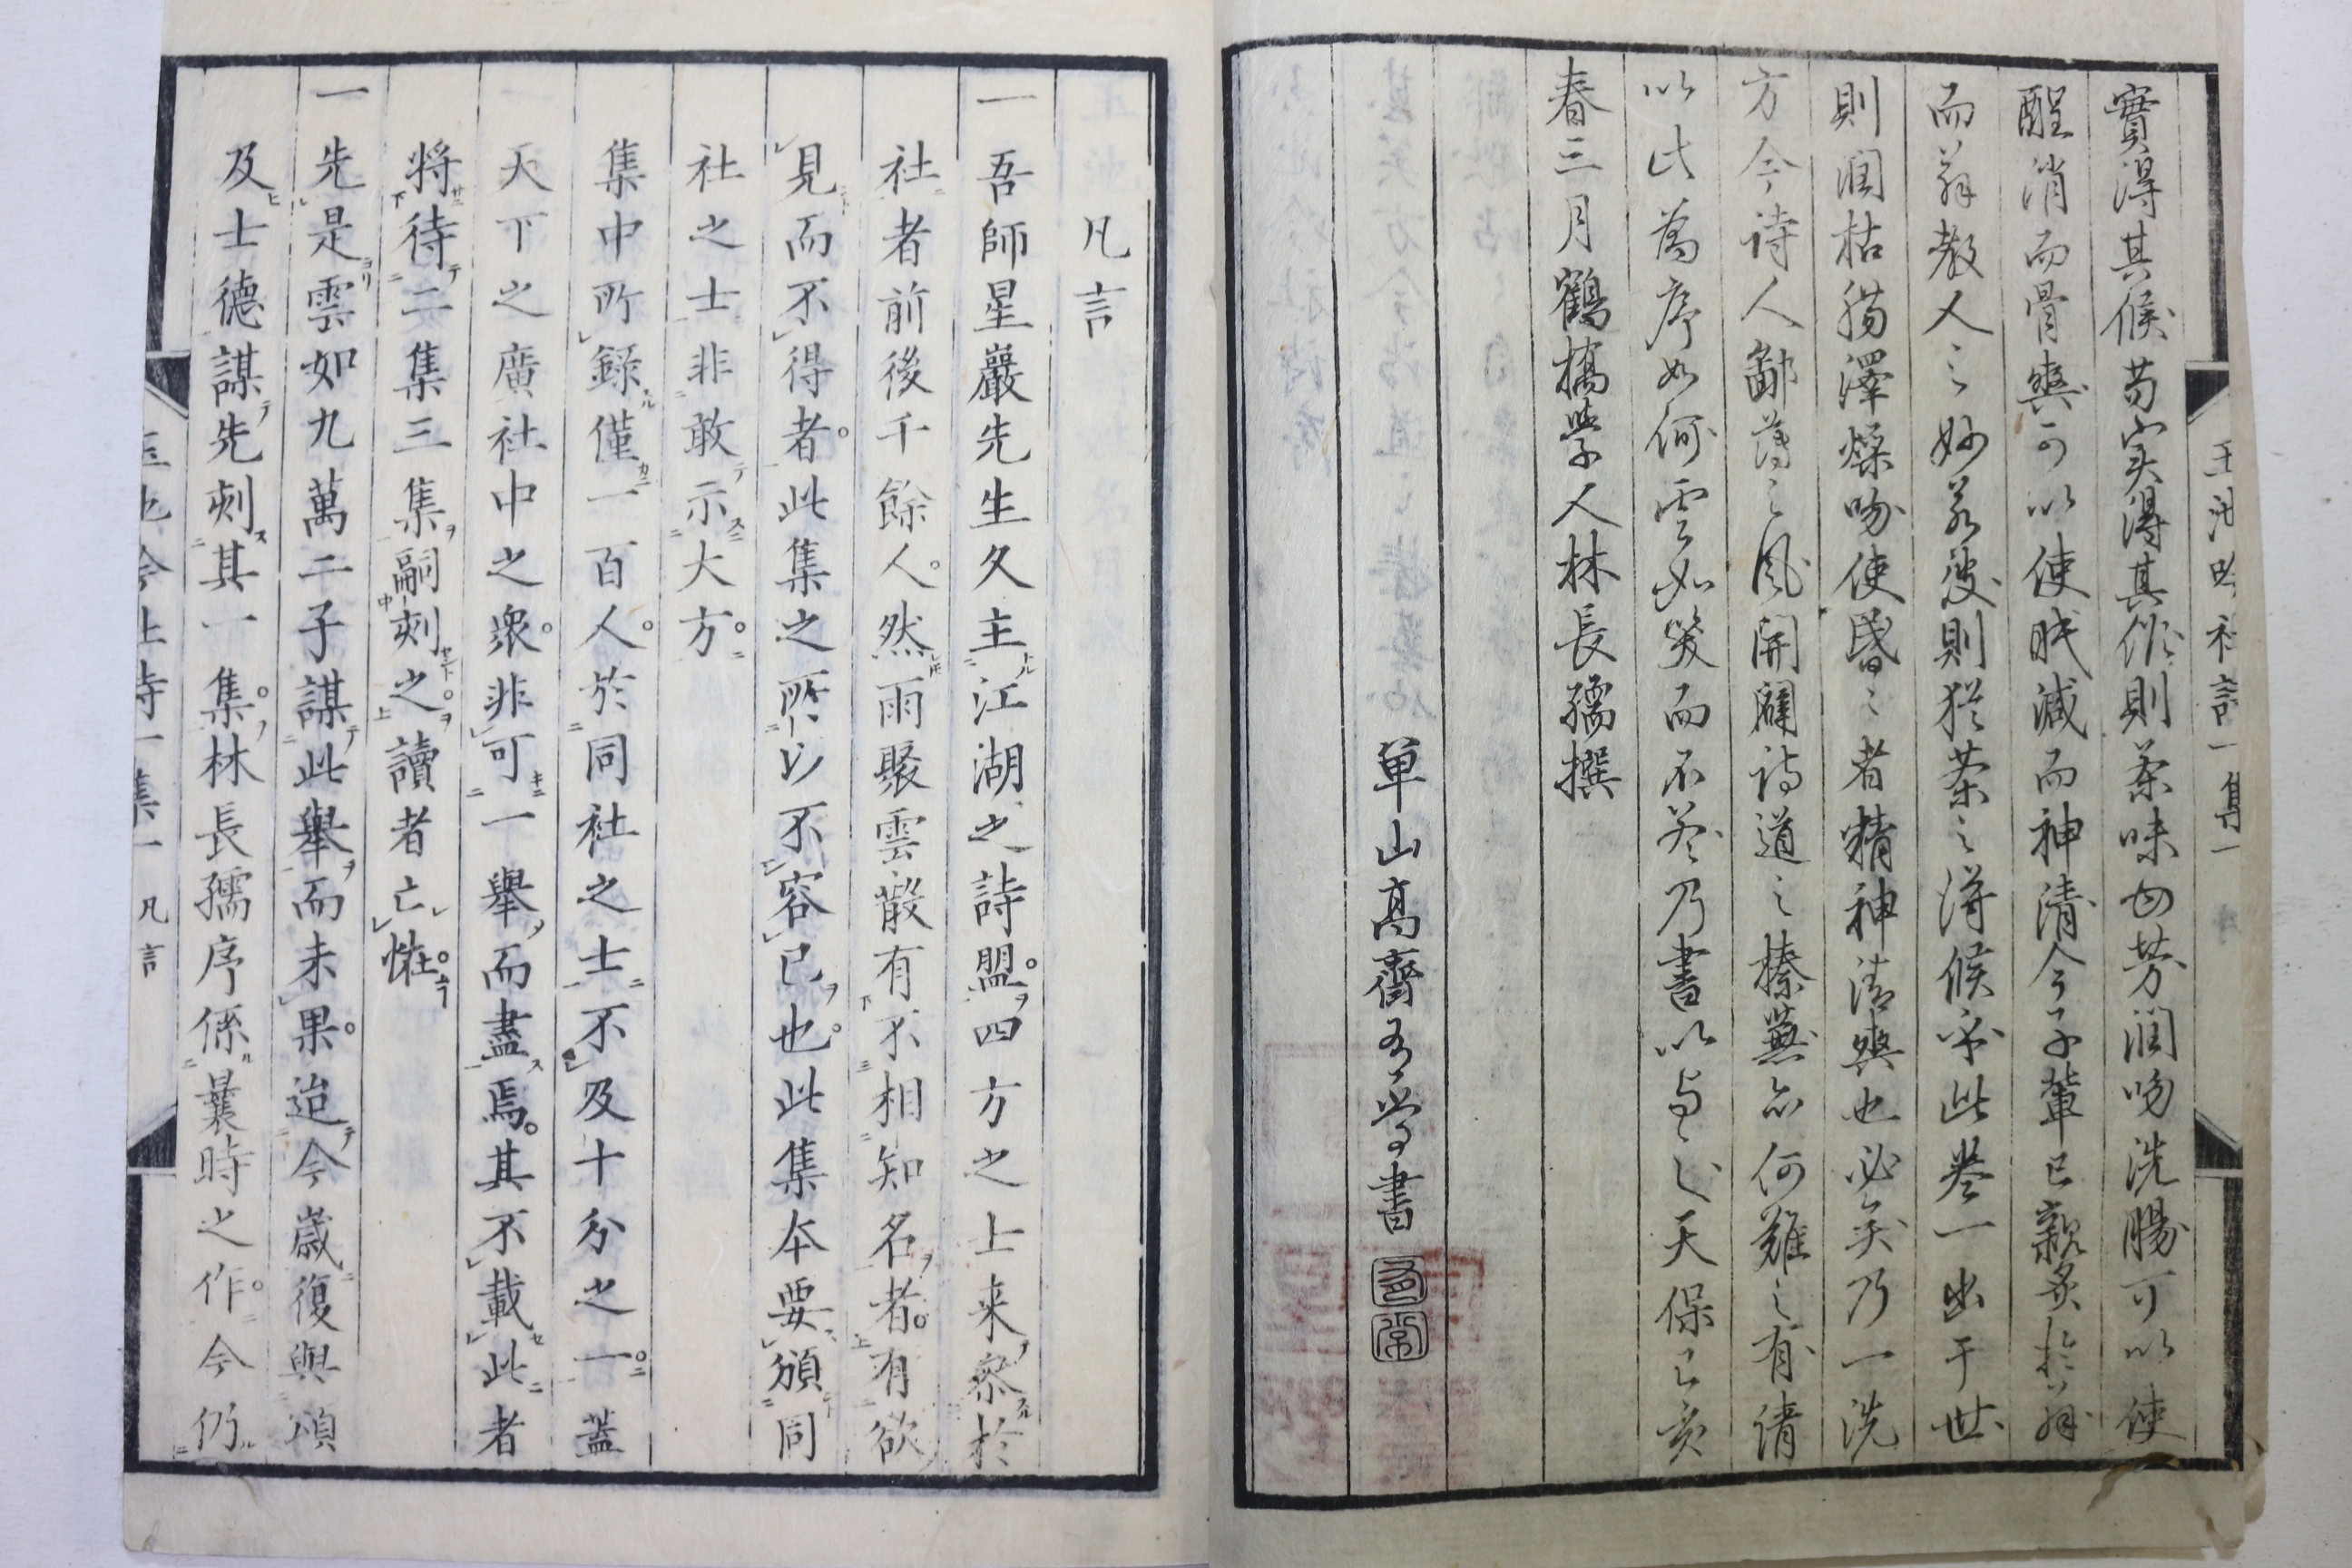 實得其候苟実得其候則茶味甘芳潤吻洗腸可以使
酲消而骨爽可以使眠減而神清今子輩已親炙於翁
而翁教人之妙若復則猶茶之得候乎此卷一出于世
則潤枯腸澤燥吻使昏之者精神清爽也必矣乃一洗
方今詩人鄙薄之風開闢詩道之榛蕪亦何難之有請
以此為序如何雲如笑而不答乃書以與之天保己亥
春三月鶴橋學人林長孺撰
単山高齋有常書
有常
玉池吟社詩一集一
凡言
一吾師星巖先生久主江湖之詩盟四方之士来參於
社者前後千餘人然雨聚雲散有不相知名者有欲
見而不得者此集之所以不容已也此集本要頒同
社之士非敢示大方
集中所録僅一百人於同社之士不及十分之一蓋
天下之廣社中之衆非可一舉而盡焉其不載此者
将待二集三集嗣刻之讀者亡恠
一先是雲如九萬二子謀此舉而未果迨今歳復與頌
及士德謀先刺其一集林長孺序係曩時之作今仍
玉池吟社詩一集一 凡言